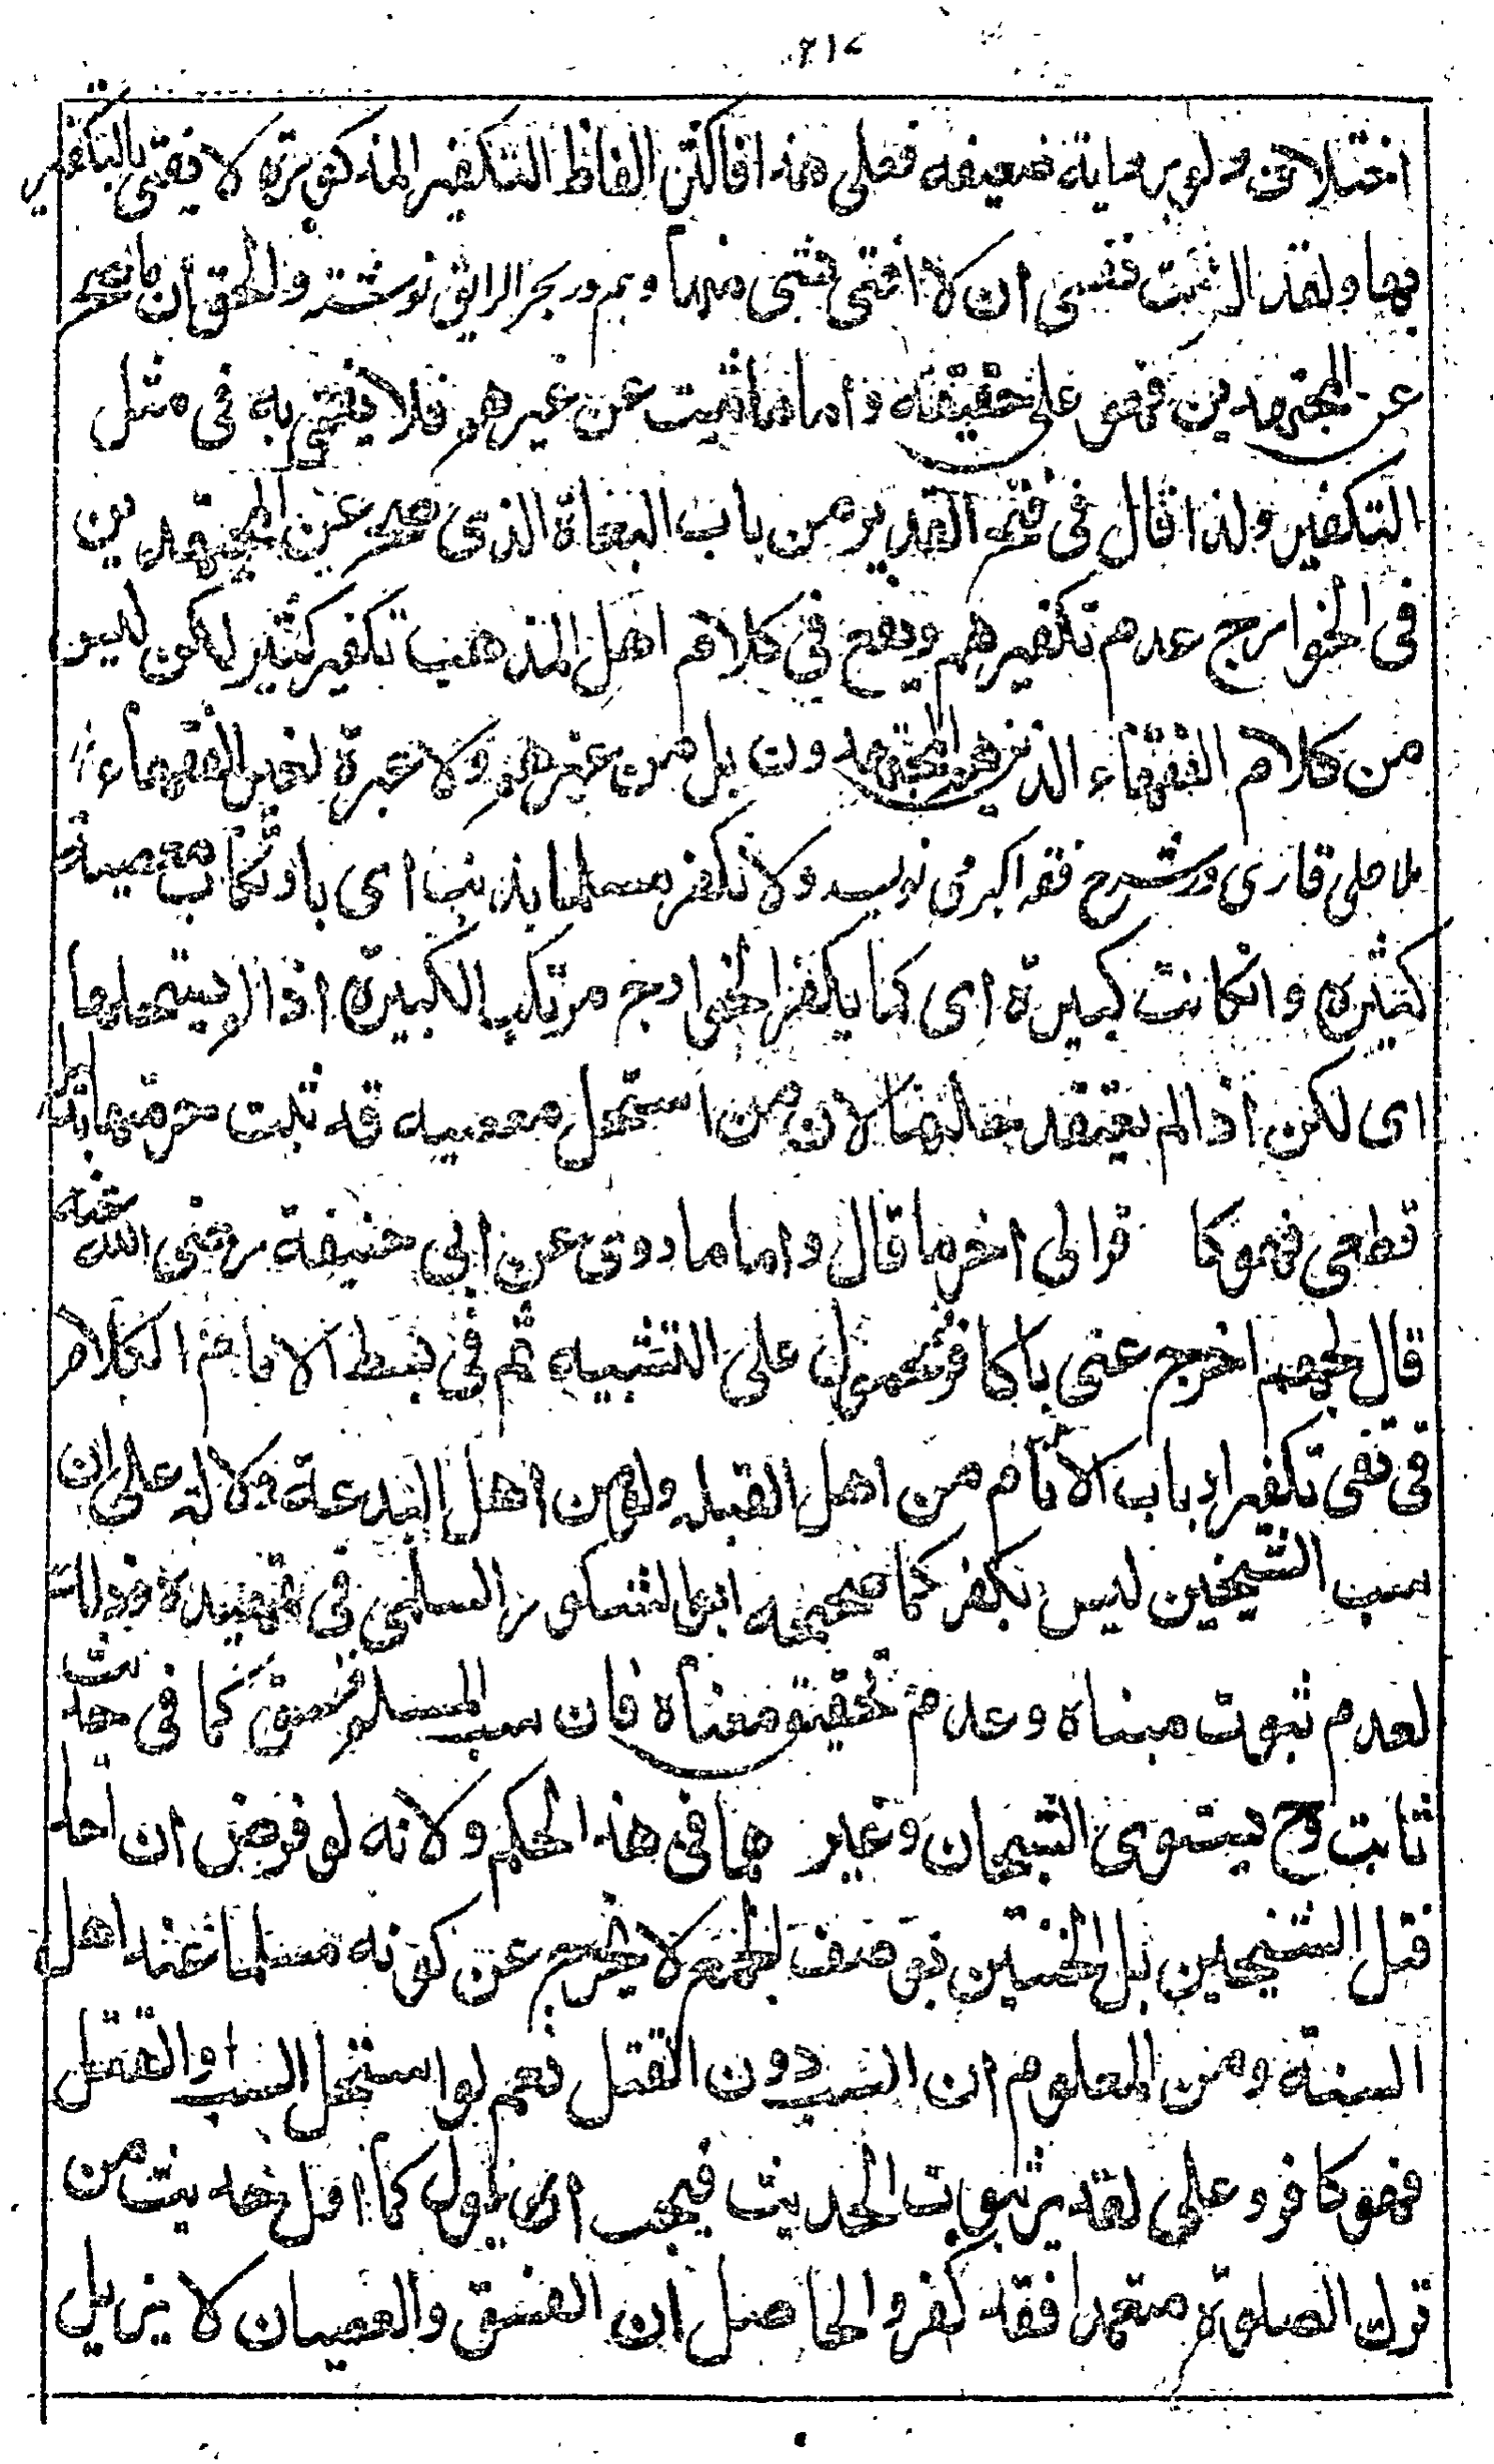 ۲۱۷
اختلاف ولو بروایة ضعیفه فعلی هذا فاکثر الفاظ التکفیر المذکورة لا یفتی بالتکفیر
بها ولقد الزمت نفسی ان لا افتی بشی منها وہم در بحر الرایق نوشتہ والحق ان ما صح
عن المجتهدین فهو علی حقیقته واما ما ثبت عن غیرهم فلا یفتی به فی مثل
التکفیر ولذا قال فی فتح القدیر من باب البغاة الذی صح عن المجتهدین
فی الخوارج عدم تکفیرهم ویقع فی کلام اهل المذهب تکفیر کثیر لکن لیس
من کلام الفقهاء الذین هم المجتهدون بل من غیرهم ولا عبرة لغیر الفقهاء
ملا علی قاری در شرح فقہ اکبر می نویسد ولا نکفر مسلما بذنب ای بارتکاب معصیة
کثیره وانکانت کبیرة ای کما یکفر الخوارج مرتکب الکبیرة اذا لم یستحلها
ای لکن اذا لم یعتقد حلها لان من استحل معصیه قد ثبت حرمتها بدلیل
قطعی فهو کا فر الی اخر ما قال واما ما روی عن ابی حنیفة رضی الله عنه
قال لجهم اخرج عنی یا کافر فمحمول علی التشبیه ثم فی بسط الامام الکلام
فی نفی تکفیر ارباب الاثام من اهل القبله ولو من اهل البدعة دلالة علی ان
سب الشیخین لیس بکفر کما صححه ابو الشکور السلمی فی تمهیده وذلك
لعدم ثبوت مبناه وعدم تحقیق معناه فان سب المسلم فسق کما فی حدیث
ثابت وح یستوی الشیخان وغیر هما فی هذا الحکم ولانه لو فرض ان احدا
قتل الشیخین بل الختنین بوصف الجمع لا یخرج عن کونه مسلما عند اهل
السنة ومن المعلوم ان السب دون القتل نعم لو استحل السب او القتل
فهو کافر وعلی تقدیر ثبوت الحدیث فیجب ان یاول کما اول حدیث من
ترك الصلوة متعمدا فقد کفر والحاصل ان الفسق والعصیان لا یزیل